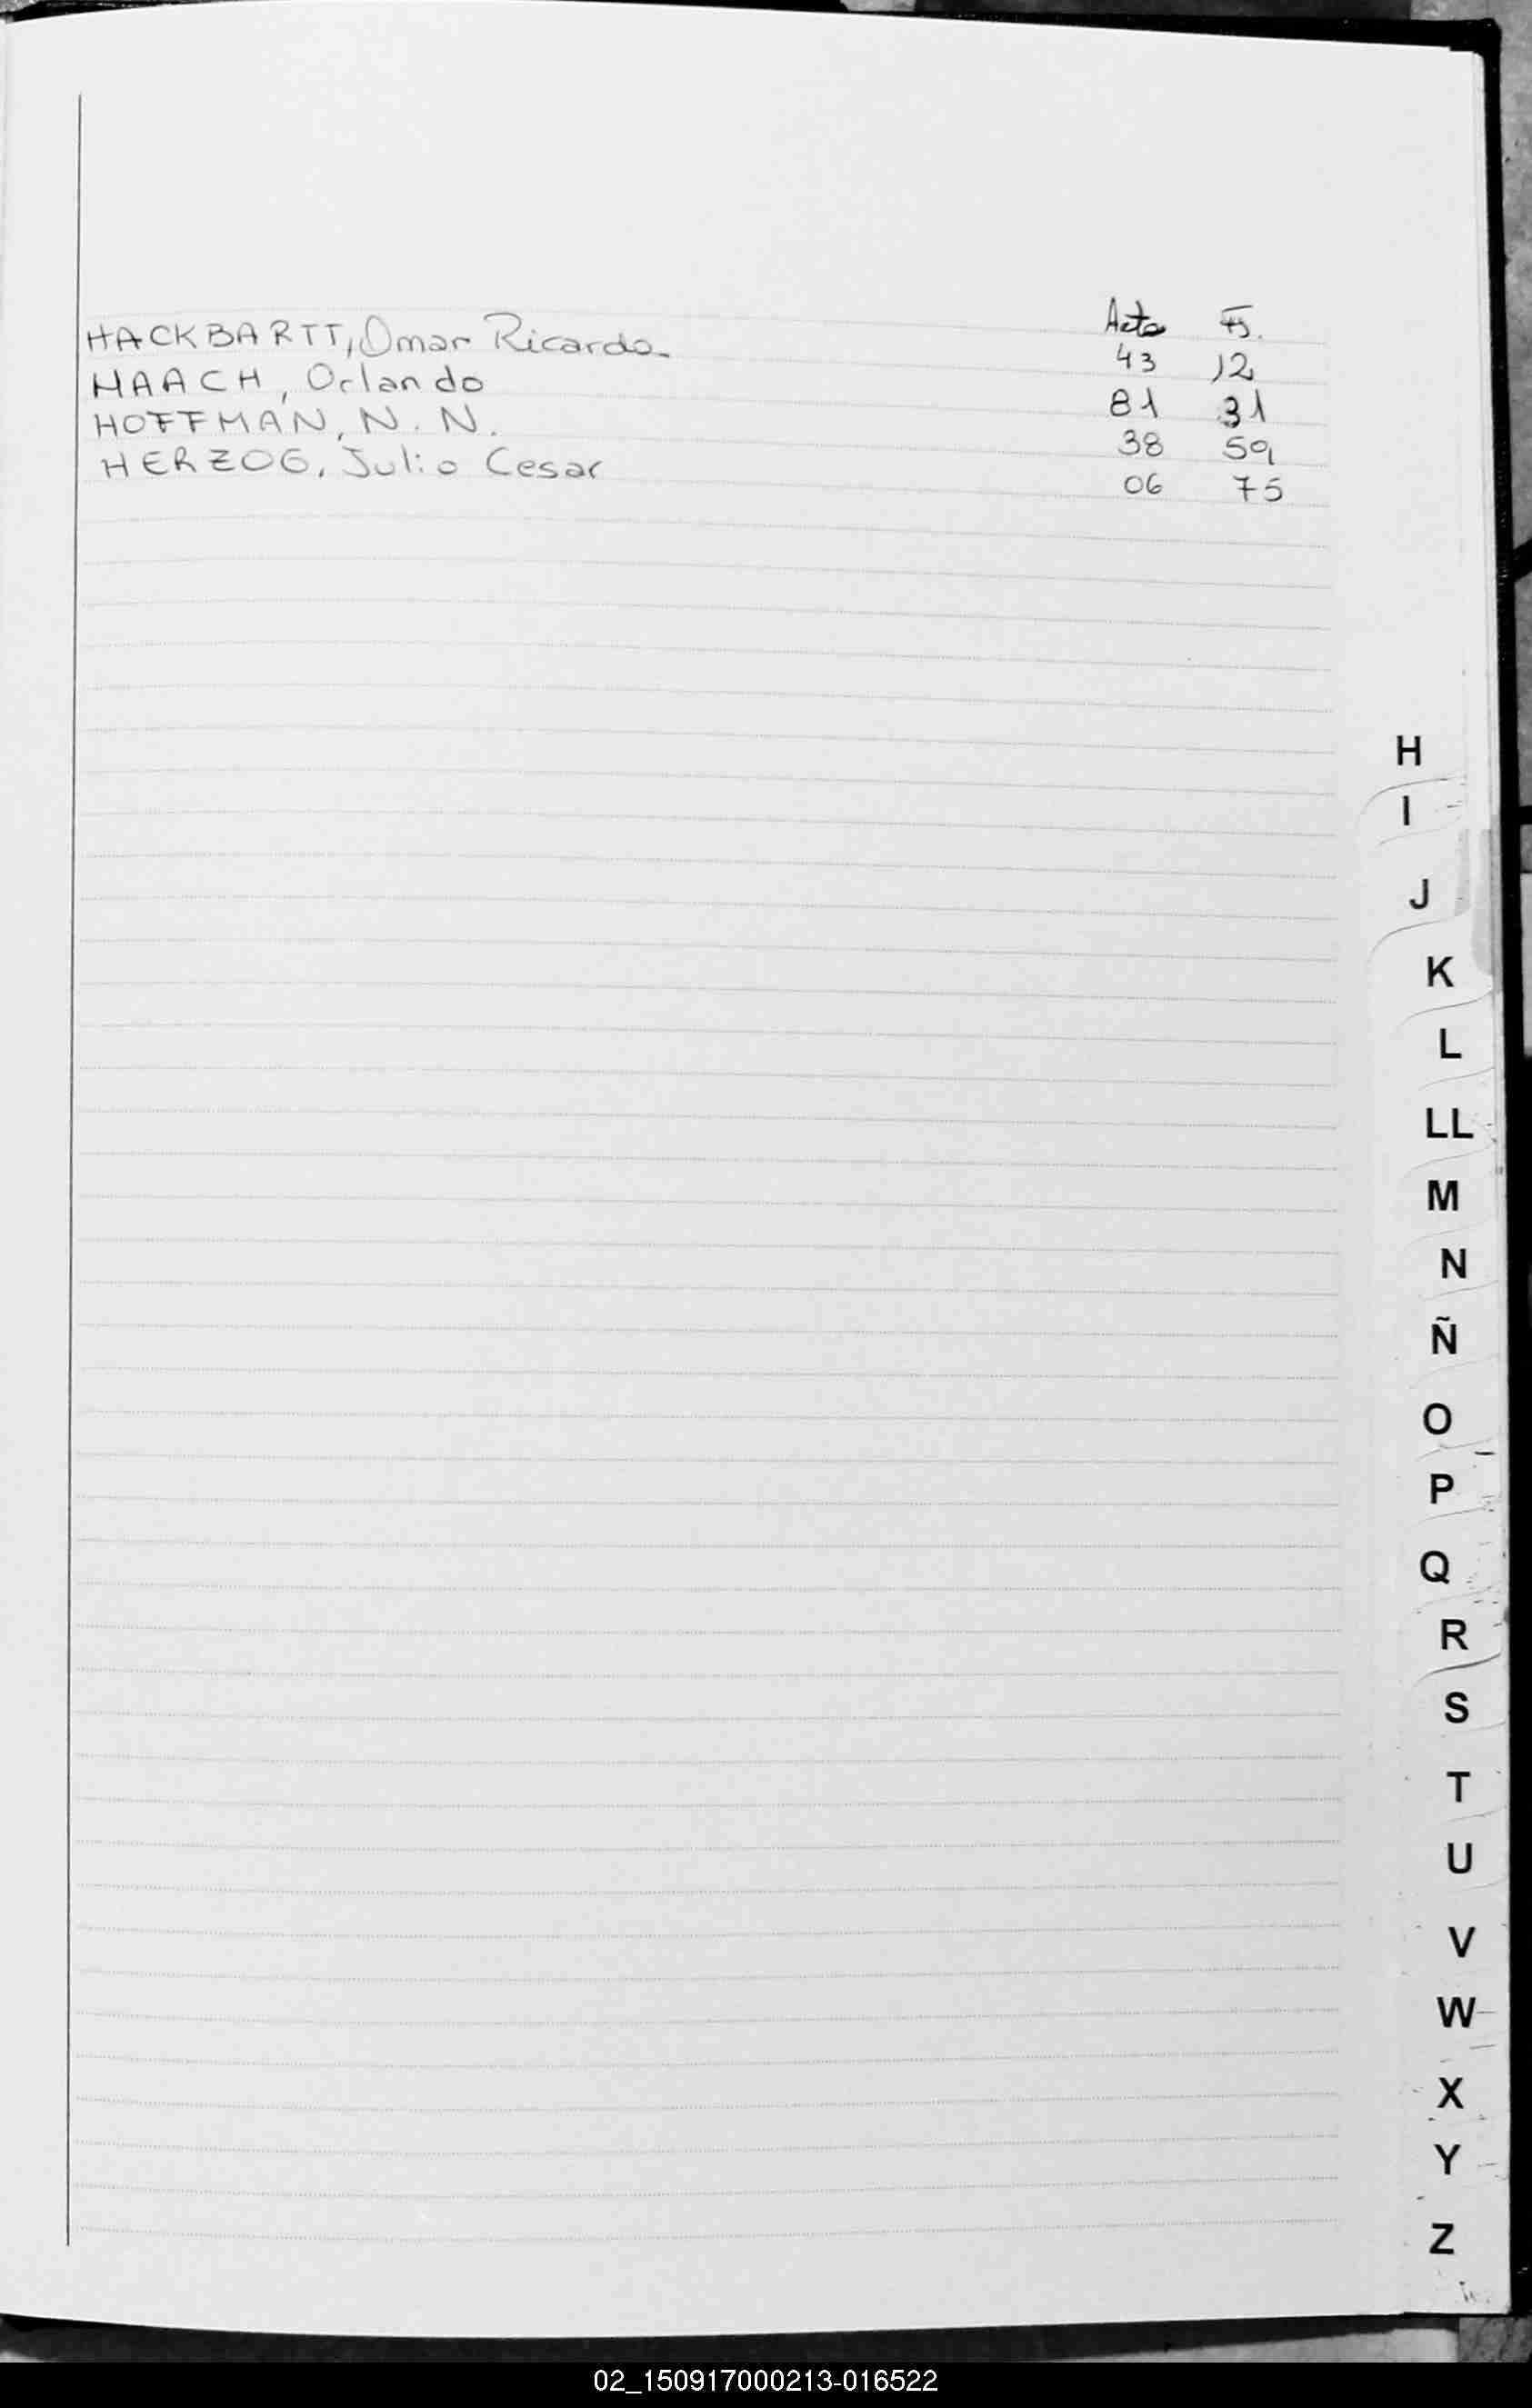 Acta Fs.
HACKBARTT, Omar Ricardo. 43 12
HAACH, Orlando 81 31
HOFFMAN, N. N. 38 59
HERZOG, Julio Cesar 06 75
H
I
J
K
L
LL
M
N
Ñ
O
P
Q
R
S
T
U
V
W
X
Y
Z
02_150917000213-016522